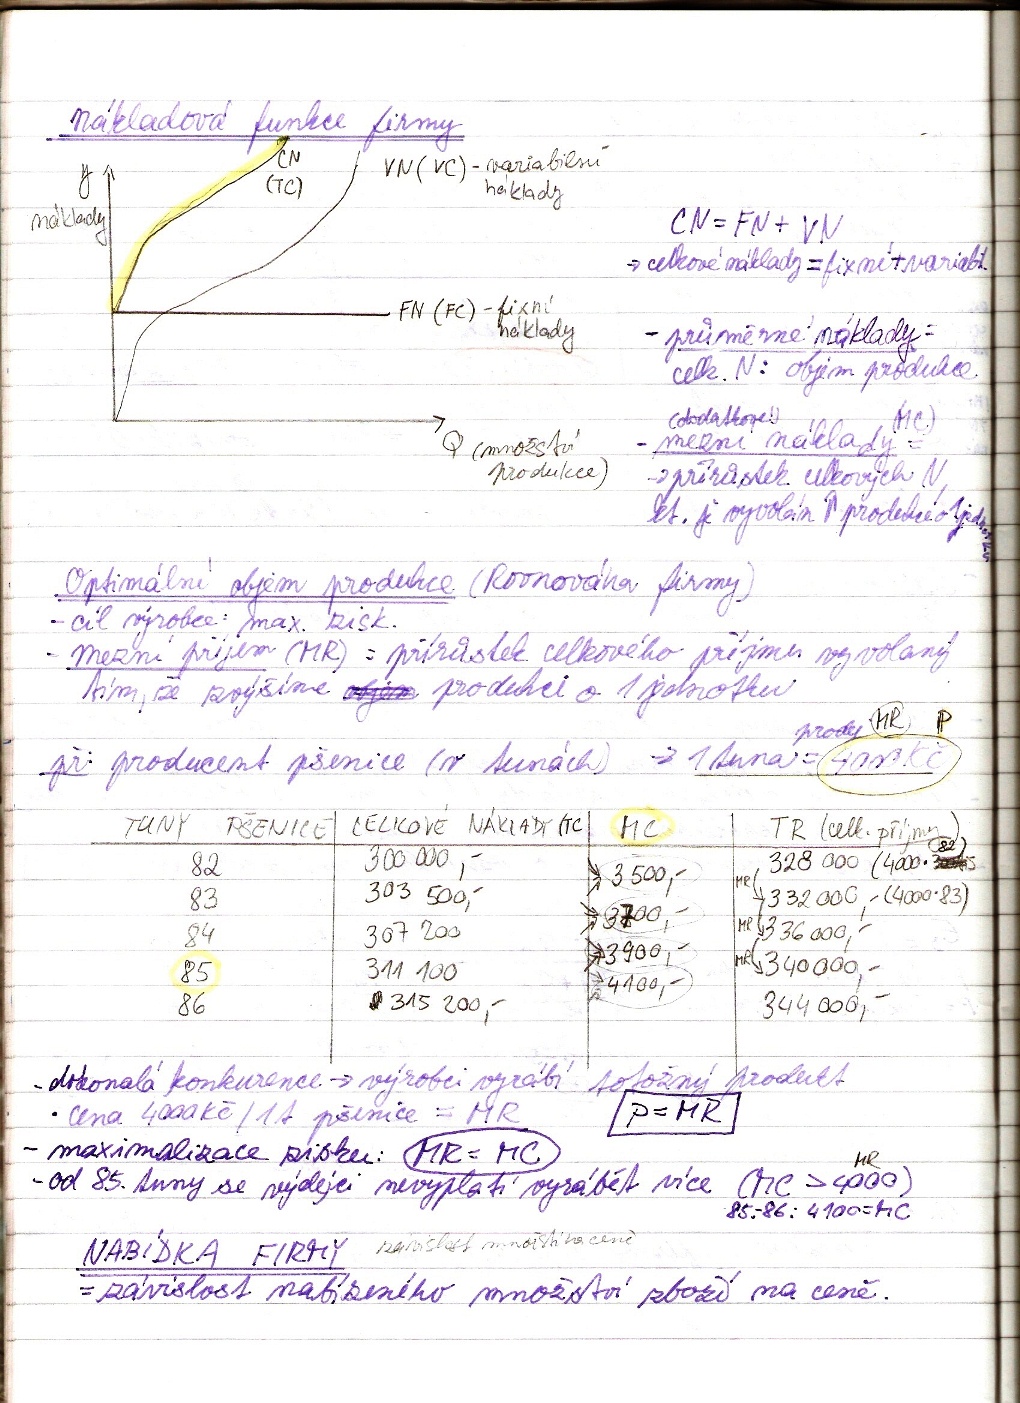 nákladová funkce firmy
CN
(TC)
VN (VC) - variabilní
náklady
y
náklady
CN = FN + VN
→ celkové náklady = fixní + variabil.
FN (FC) - fixní
náklady
- průměrné náklady =
celk. N : objem produkce
Q (množství
produkce)
(dodatkové) (MC)
- mezní náklady =
→ přírůstek celkových N,
kt. je vyvolán ↑ produkcí o 1 jednotku
Optimální objem produkce (Rovnováha firmy)
- cíl výrobce: max. zisk.
- mezní příjem (MR) = přírůstek celkového příjmu vyvolaný
tím, že zvýšíme produkci o 1 jednotku
prody MR P
př: producent pšenice (v tunách) → 1 tuna = 4000 Kč
TUNY PŠENICE | CELKOVÉ NÁKLADY (TC | MC | TR (celk. příjmy)
82 | 300 000,- | 328 000 (4000·82)
3 500,-
83 | 303 500,- | MR 332 000,- (4000·83)
3700,-
84 | 307 200 | MR 336 000,-
3900,-
85 | 311 100 | MR 340 000,-
4100,-
86 | 315 200,- | 344 000,-
- dokonalá konkurence → výrobci vyrábí totožný produkt
· cena 4000 Kč / 1t pšenice = MR P = MR
- maximalizace zisku: MR = MC
- od 85. tuny se výdejci nevyplatí vyrábět více (MC > 4000) MR
85.-86: 4100 = MC
NABÍDKA FIRMY závislost množství na ceně
= závislost nabízeného množství zboží na ceně.